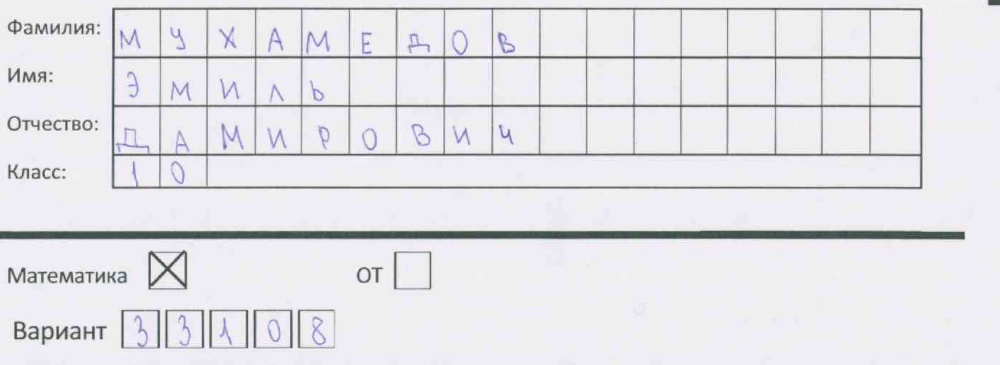 Фамилия: МУХАМЕДОВ
Имя: ЭМИЛЬ
Отчество: ДАМИРОВИЧ
Класс: 10
Математика ОТ
Вариант 33108